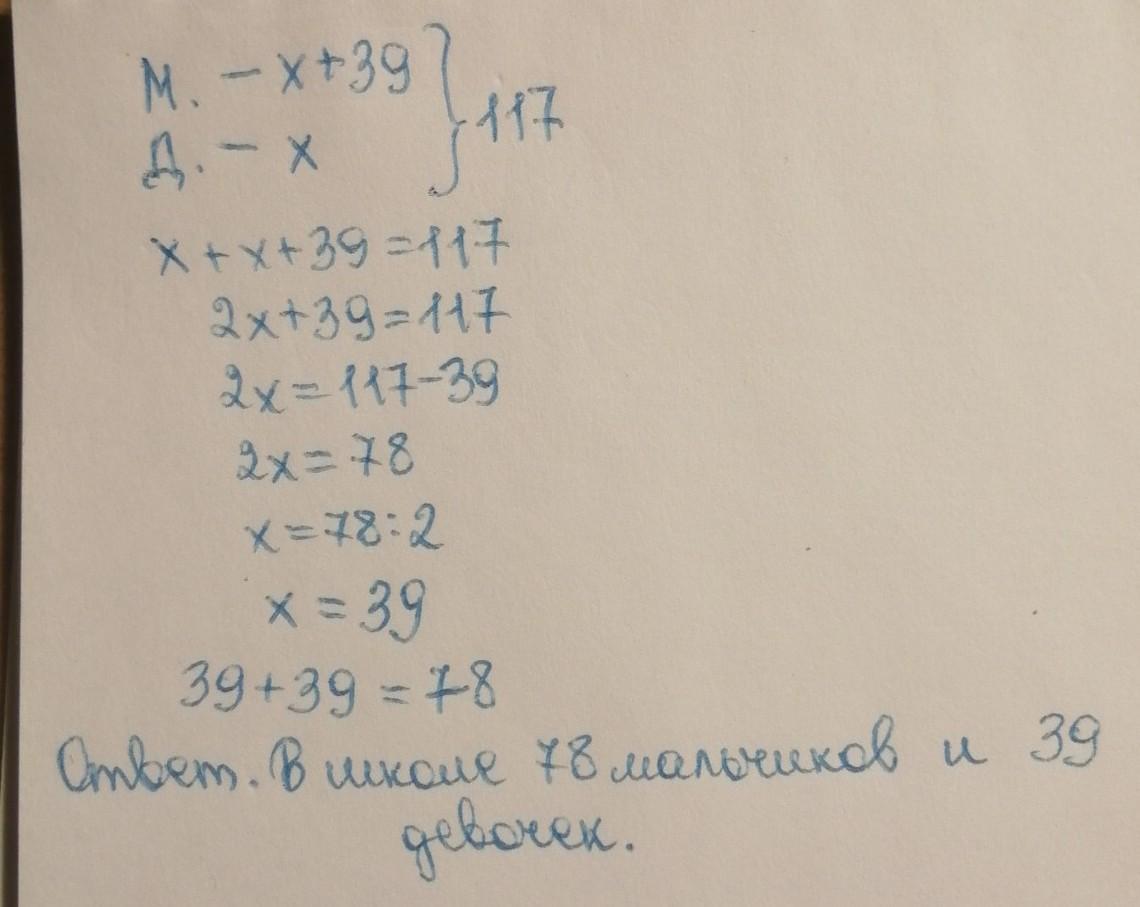 М. – x+39 } 117
Д. – x
x + x + 39 = 117
2x+39=117
2x = 117-39
2x = 78
x = 78:2
x = 39
39+39 = 78
Ответ. В школе 78 мальчиков и 39
девочек.